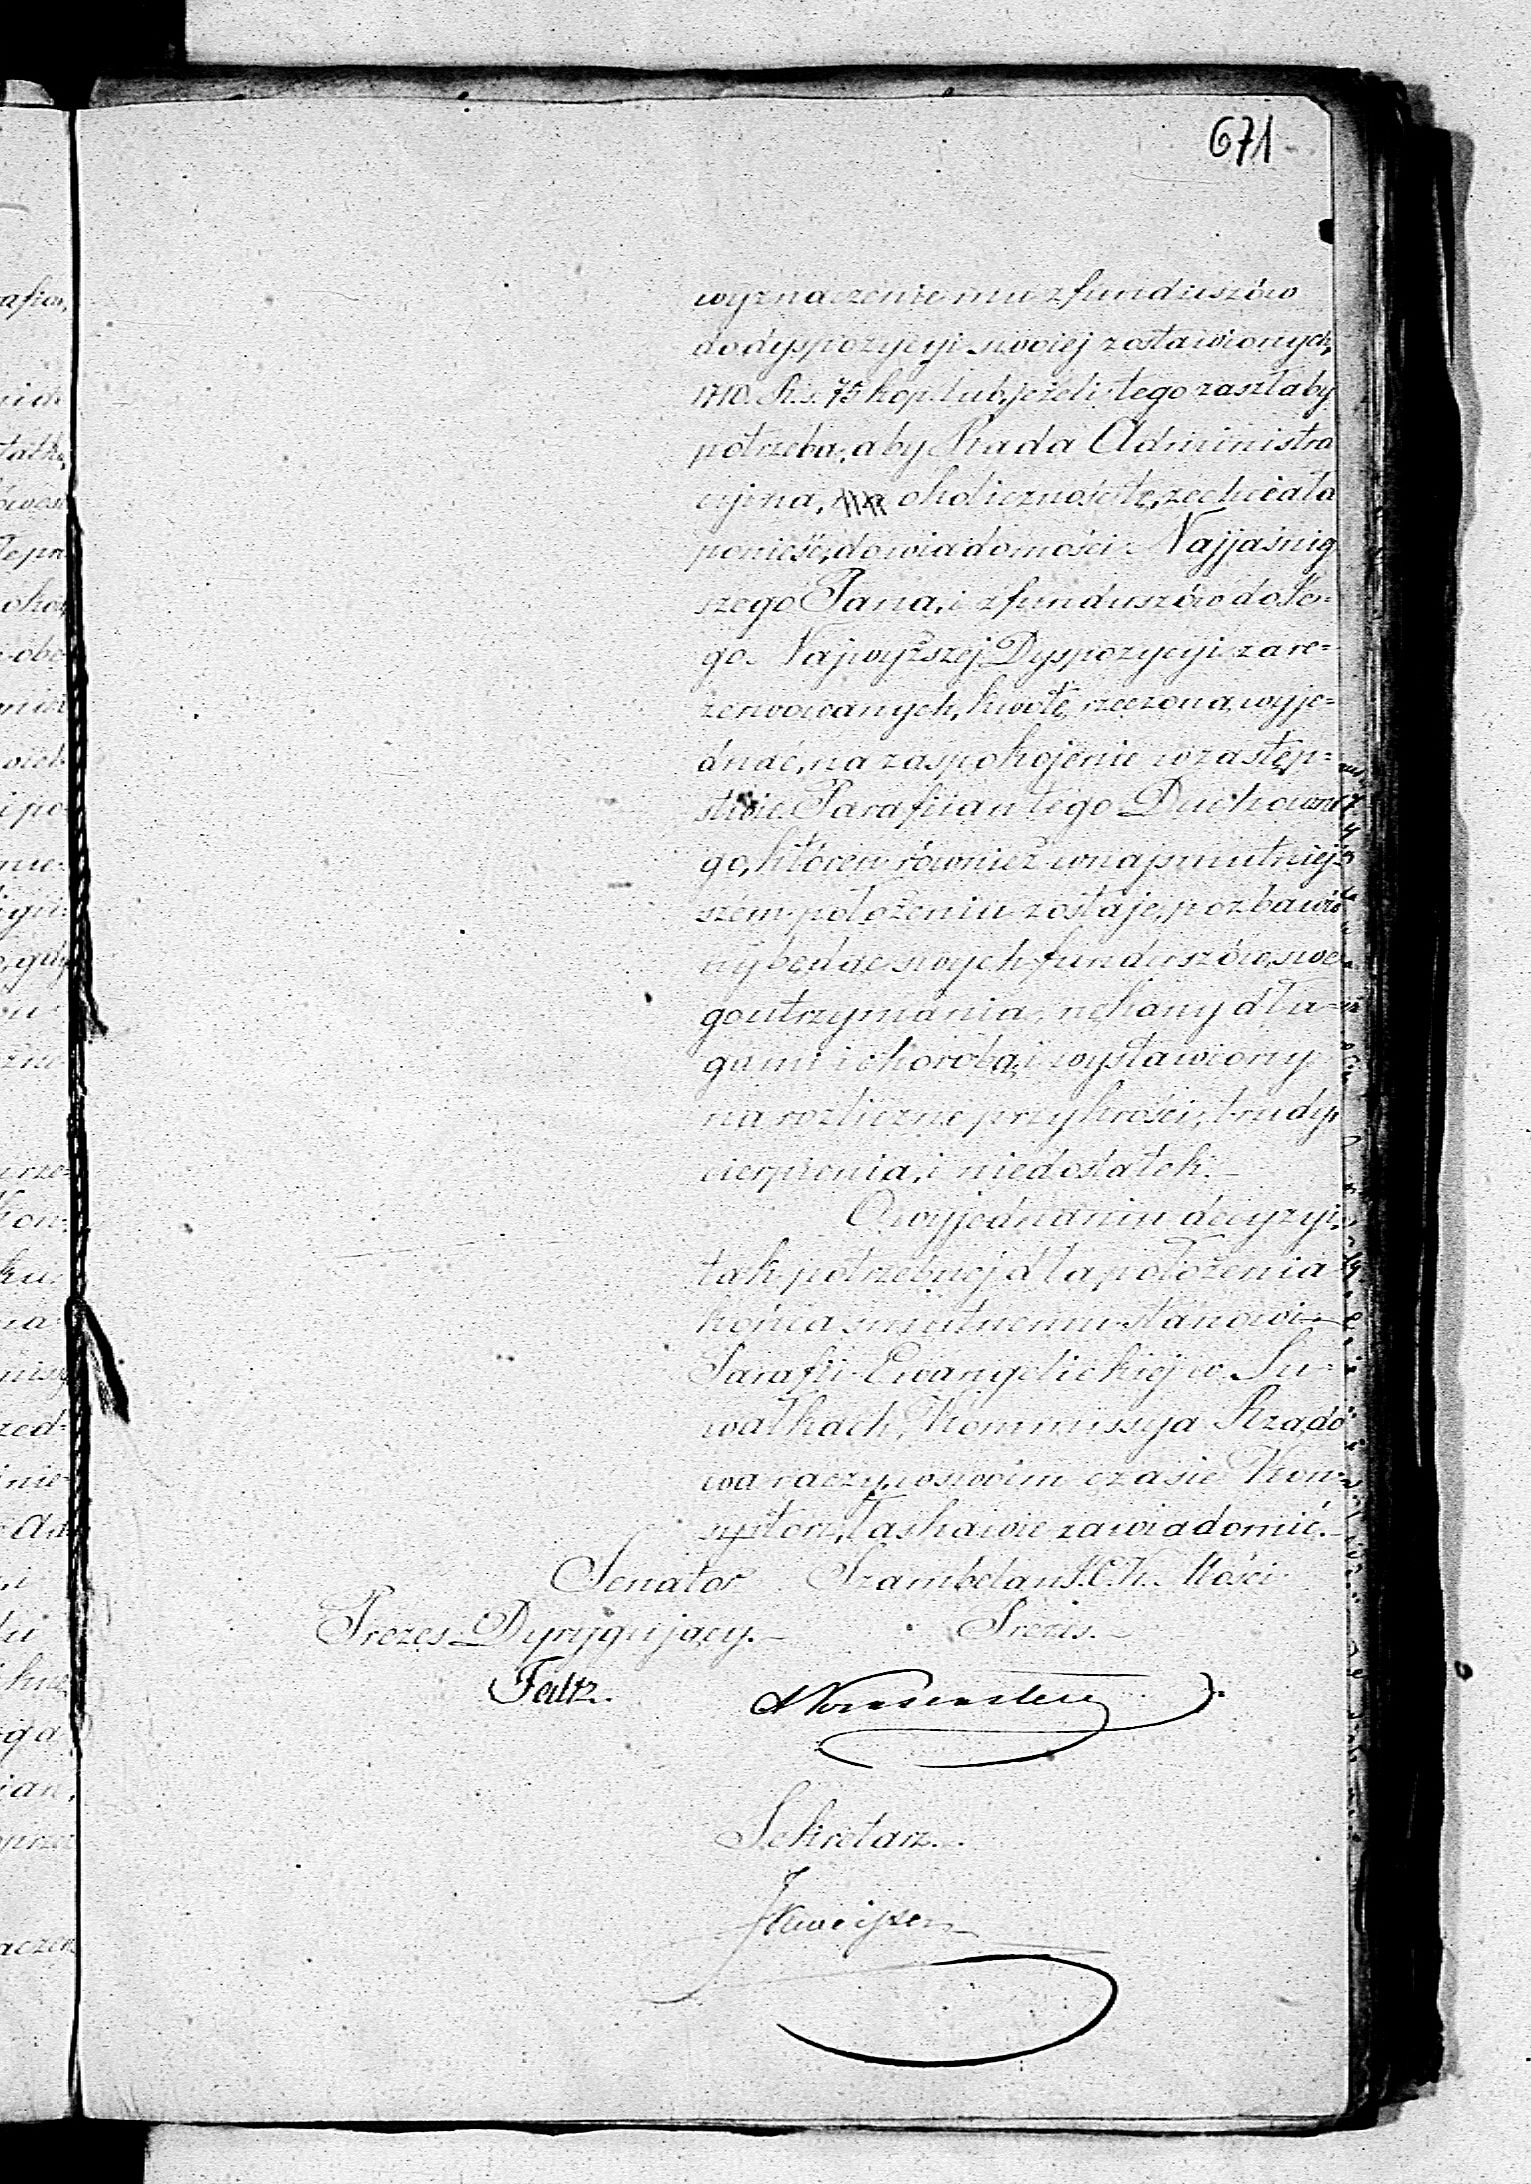 671
wyznaczenie mu z funduszów
do dyspozycyi swoiej zostawionych,
1710. R.s. 75 kop. lub, jeżeli tego zaszłaby
potrzeba, aby Rada Administra
cyjna, okoliczność tę, zechciała
ponieść, do wiadomości Najjaśniej
szego Pana, i z funduszów do Je-
go Najwyższej Dyspozycyi zare-
zerwowanych, kwotę rzeczoną, wyje-
dnać, na zaspokojenie w zastęp-
stwie Parafiian tego Duchowne
go, któren również w najsmutniej-
szém położeniu zostaje, pozbawio
ny będąc swych funduszów, swe
go utrzymania, nękany dłu-
gami i chorobą, i wystawiony
na rozliczne przykrości, trudy,
cierpienia, i niedostatek.
O wyjednaniu decyzyi,
tak potrzebnej dla położenia
końca smutnemu stanowi
Parafii Ewangelickiej w Su-
wałkach, Kommissya Rządo
wa raczy, w swoim czasie Kon-
systorz, łaskawie zawiadomić.
Senator Szambelan J.C.K. Mości
Prezes Dyrygujący. Prezes.
Faltz.
Sekretarz.